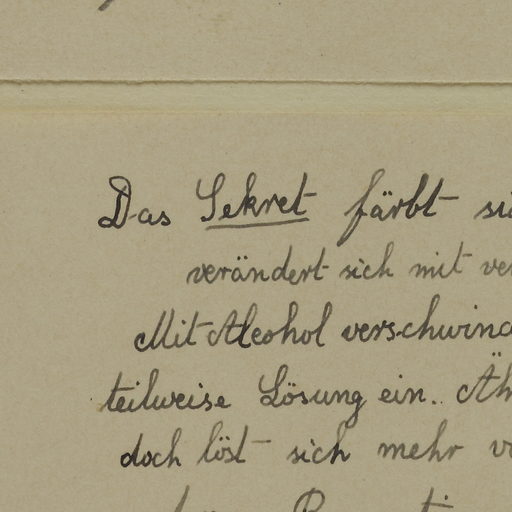 Das Sekret färbt
verändert sich mit
Mit Alcohol verschwind
teilweise Lösung ein. Äh
doch löst sich mehr